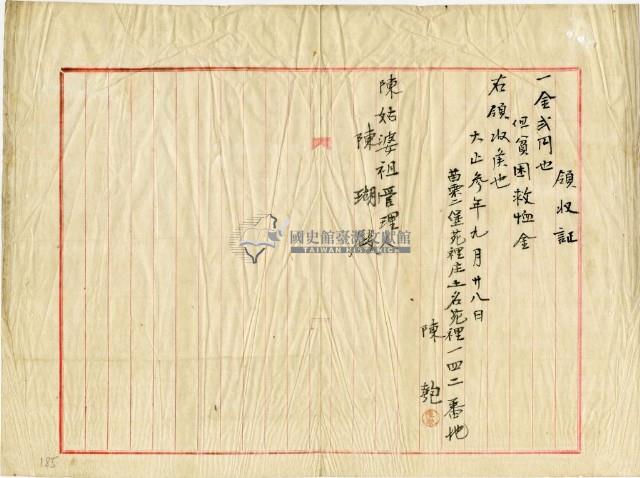 領収証
一金弍円也
但貧困救恤金
右領收候也
大正参年九月廿八日
苗栗二堡苑裡庄土名苑裡一四二番地
陳
陳姑婆祖管理
陳瑚
國史館臺灣文獻館
TAIWAN HISTORICA
185